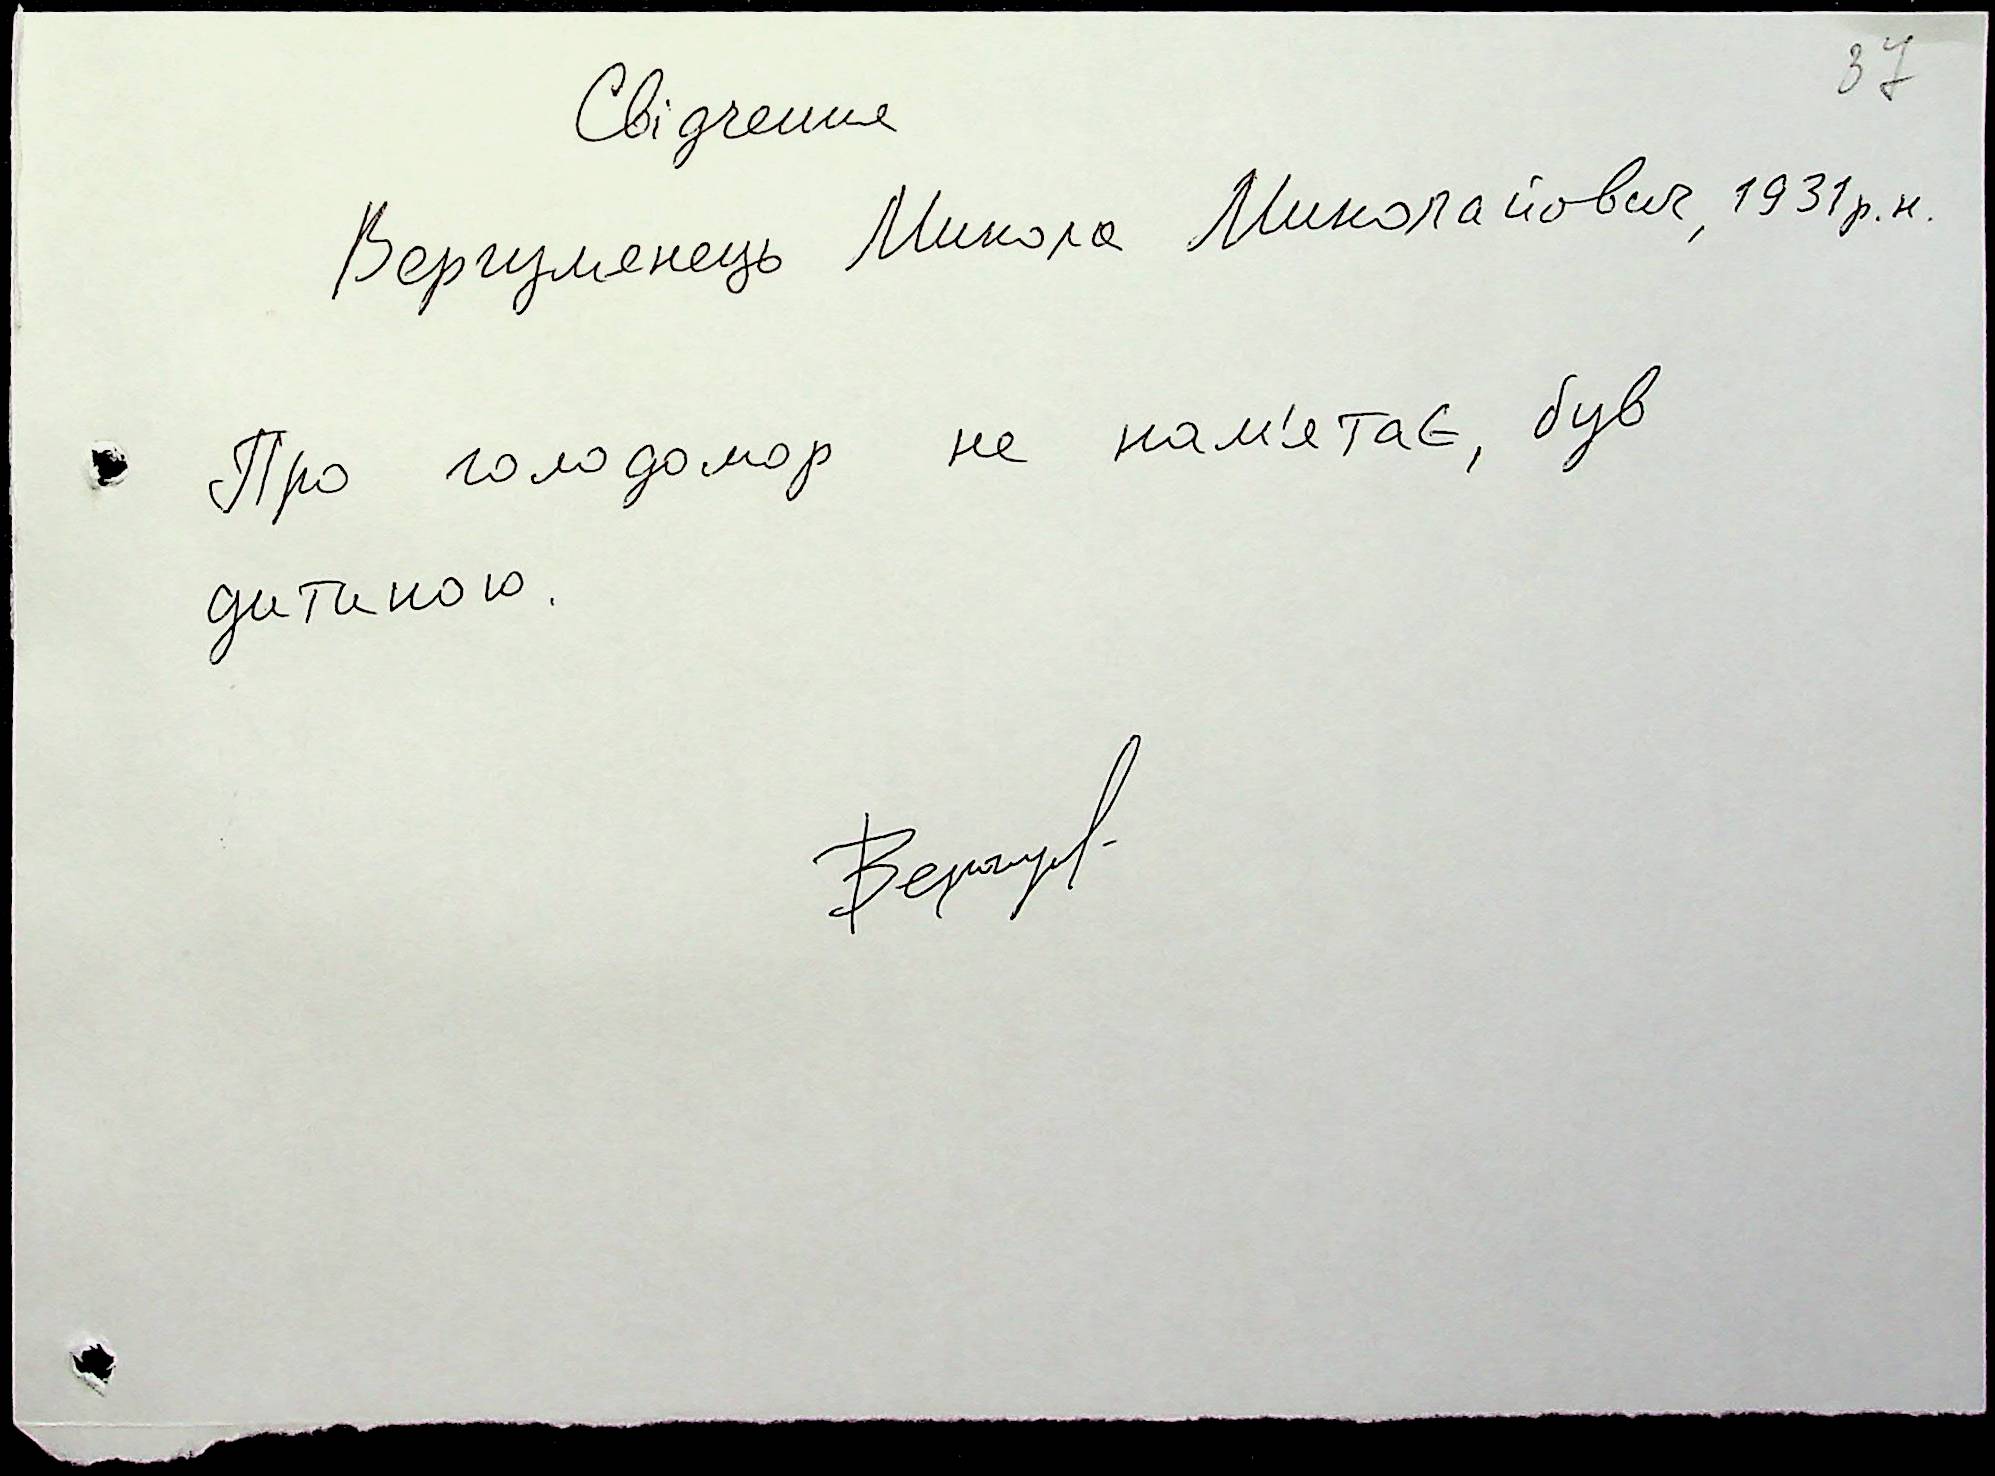 37
Свідчення
Вергуменець Микола Миколайович, 1931 р.н.
Про голодомор не пам'ятає, був
дитиною.